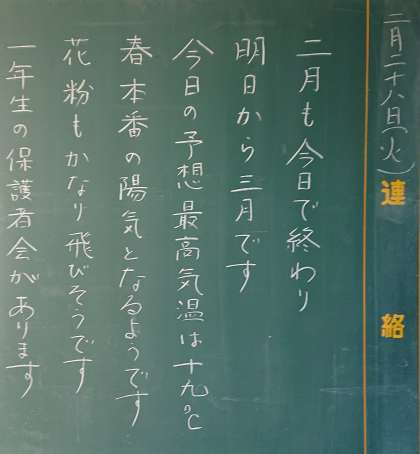 二月二十八日(火)
連絡
二月も今日で終わり
明日から三月です
今日の予想最高気温は十九℃
春本番の陽気となるようです
花粉もかなり飛びそうです
一年生の保護者会があります